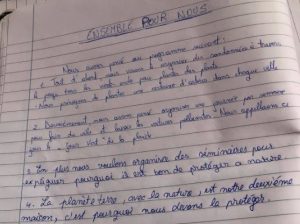 ENSEMBLE POUR NOUS
Nous avons pensé au programme suivant:
1. Tout d'abord, nous avons à organiser du
le pays tous les week-ends pour planter des plants.
Nous pensons de planter une centaine d'arbres dans chaque ville
2. Deuxièmement nous avons pensé organiser une journée par semaine
pour faire du vélo et laisser les voitures polluantes. Nous appellerons ce
jour le "jour Vert" de la planète
3. En plus nous voulons organiser des séminaires pour
expliquer pourquoi il est bon de protéger la nature
4. La planète terre, avec la nature, est notre deuxième
maison, c'est pourquoi nous devons la protéger.